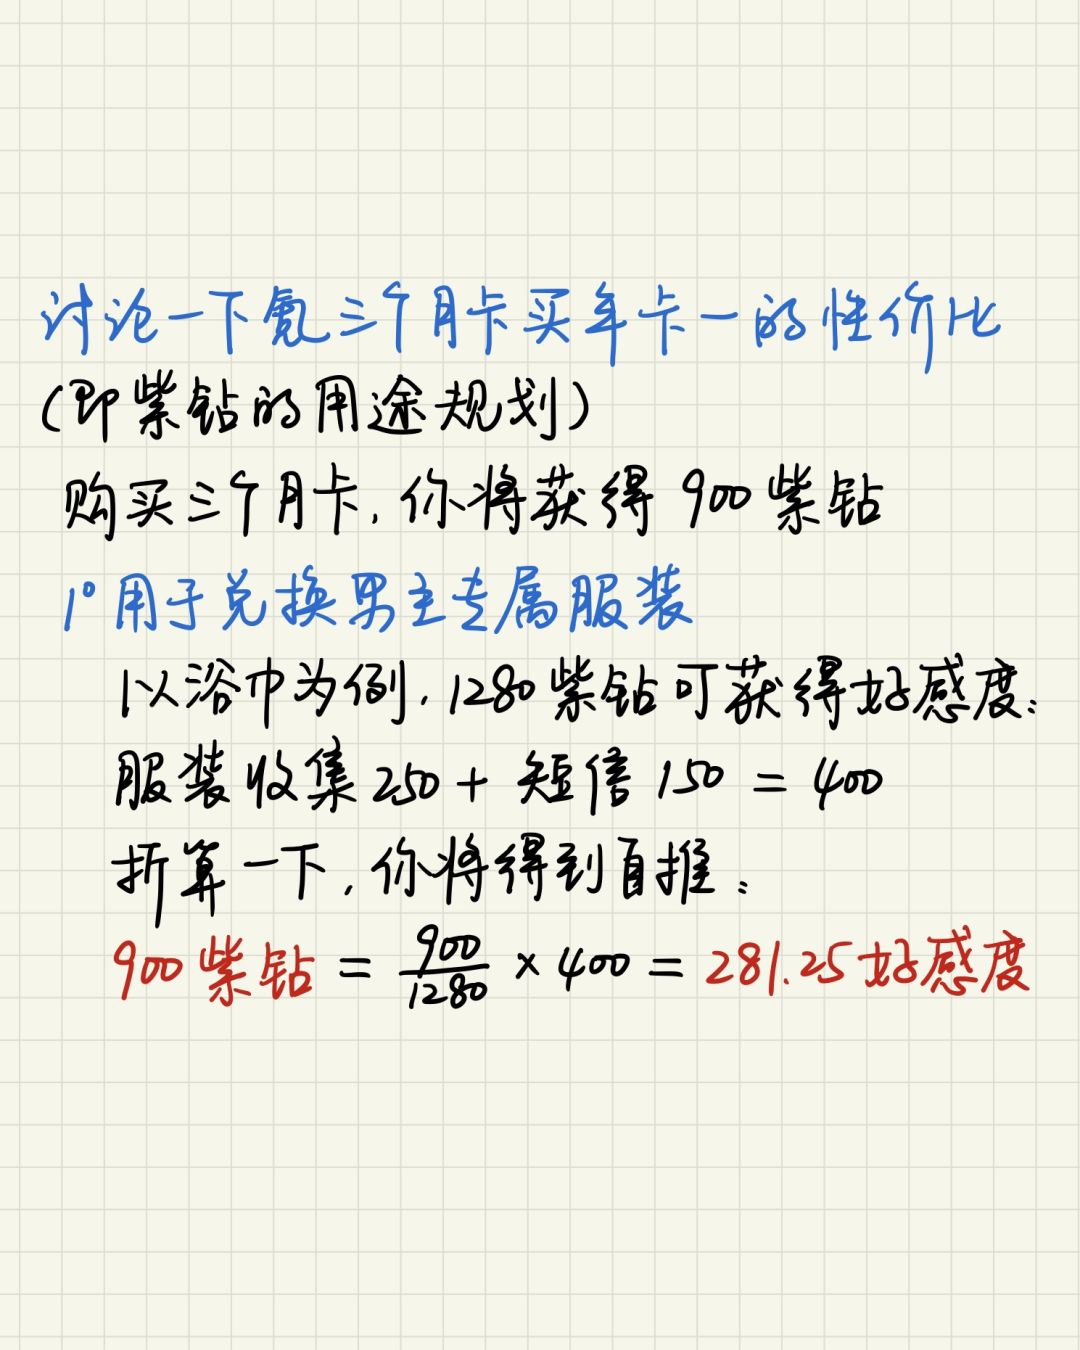 讨论一下氪三个月卡买年卡一的性价比
(即紫钻的用途规划)
购买三个月卡,你将获得 900 紫钻
1° 用于兑换男主专属服装
以浴巾为例,1280紫钻可获得好感度:
服装收集250 + 短信150 = 400
折算一下,你将得到自推:
900紫钻 = 900/1280 × 400 = 281.25好感度